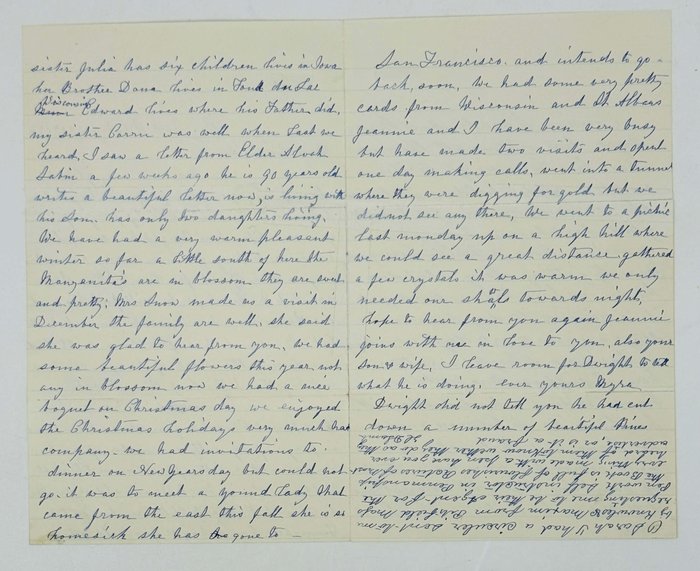 sister Julia has six children lives in Iowa
her Brother Dana lives in Fond du Lac
Wisconsin
Edward lives where his Father did,
my sister Carrie was well when last we
heard, I saw a letter from Elder Alvah
Sabin a few weeks ago he is 90 years old
writes a beautiful letter now, is living with
his Son. has only two daughters living.
We have had a very warm pleasant
winter so far a little south of here the
Manzanita's are in blossom they are sweet
and pretty; Mrs Snow made us a visit in
December the family are well. she said
she was glad to hear from you, we had
some beautiful flowers this year, not
any in blossom now we had a nice
boquet on Christmas day we enjoyed
the Christmas holidays very much had
company. we had invitations to
dinner on New Years day but could not
go. it was to meet a young Lady that
came from the east this fall she is so
homesick she has gone to
San Francisco. and intends to go
back, soon, we had some very pretty
cards from Wisconsin and St Albans
Jeannie and I have been very busy
but have made two visits and spent
one day making calls, went into a tunnel
where they were digging for gold but we
did not see any there, We went to a picnic
last monday up on a high hill where
we could see a great distance gathered
a few crystals it was warm we only
needed our shawls towards night,
hope to hear from you again Jeannie
joins with me in love to you, also your
son & wife, I leave room for Dwight to tell
what he is doing. ever yours Myra
Dwight did not tell you he had cut
down a number of beautiful Pines
O Sarah I had a circular sent to me
by Knowles & Maxim from Pittsfield Mass
requesting me to be their agent for the
instructor in Penmanship
the Book is full of flourishes
every thing made with a pen